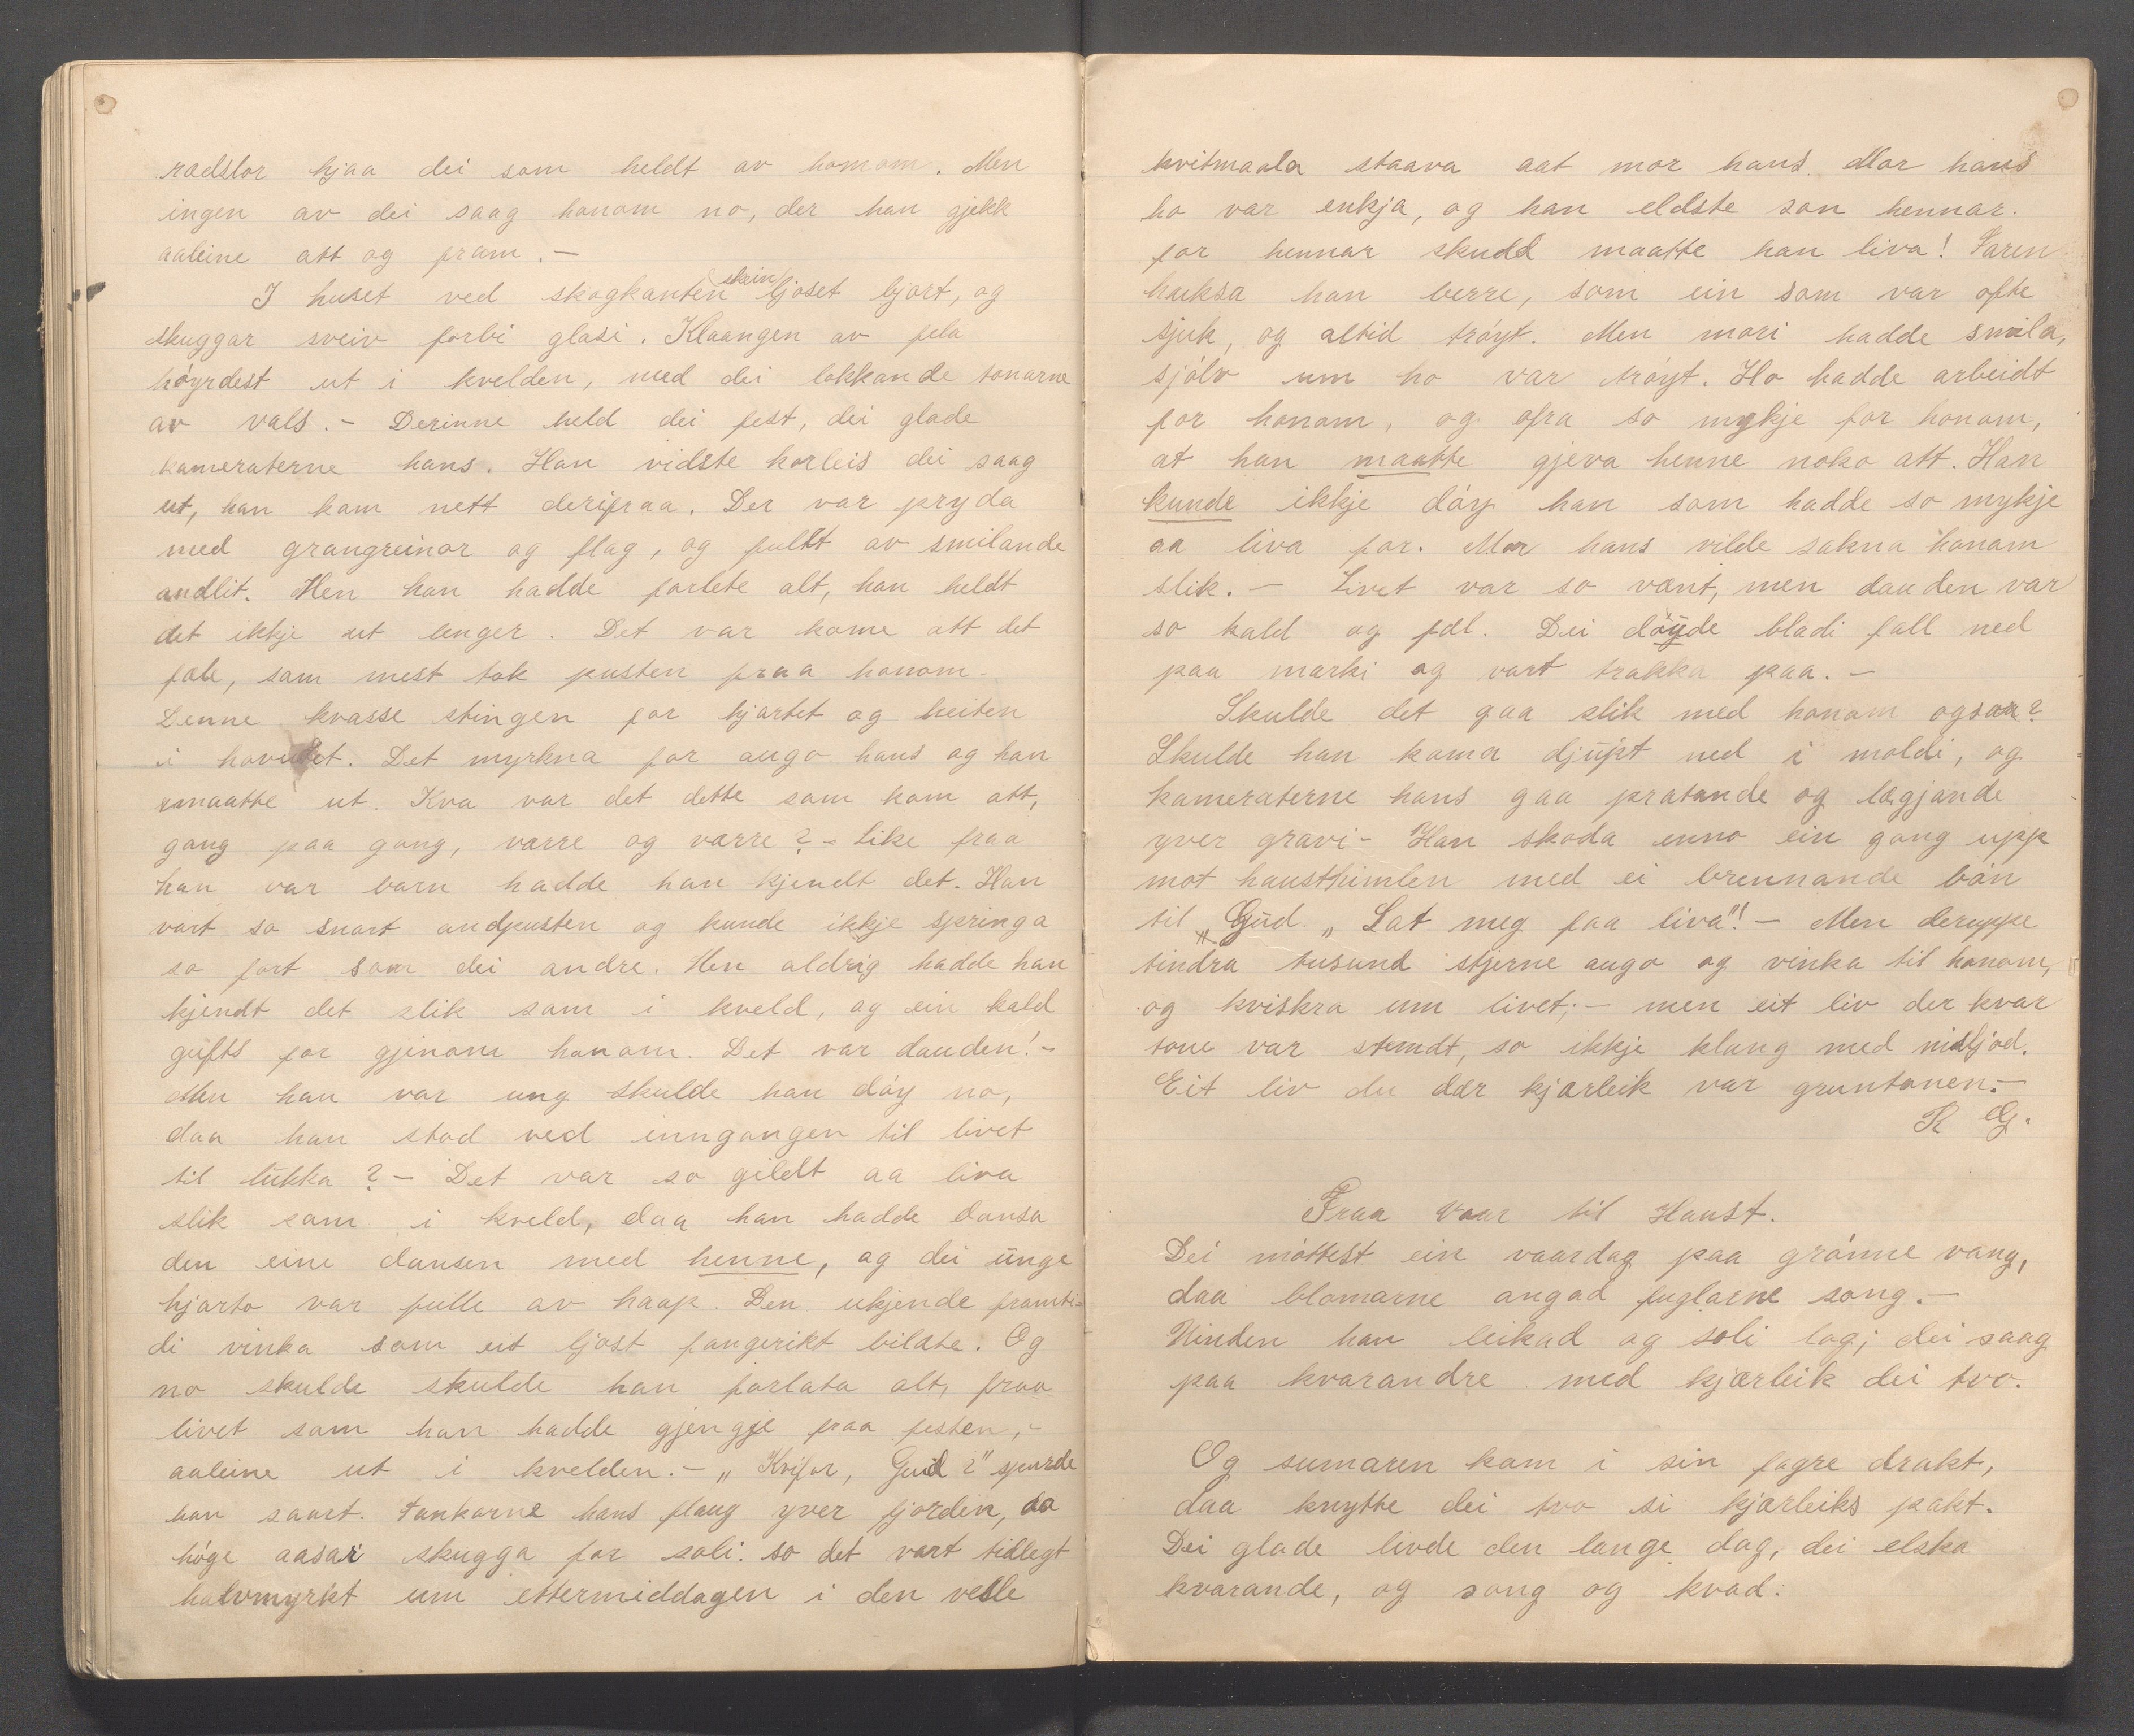 rædslor hjaa dei som heldt av honom. Men
ingen av dei saag honom no, der han gjekk
aaleine att og fram. –
I huset ved skogkanten skein ljoset bjart, og
skuggar sveiv forbi glasi. Klaangen av fela
høyrdest ut i kvelden, med dei lokkande tonarne
av vals. – Derinne held dei fest, dei glade
kameraterne hans. Han vidste korleis dei saag
ut, han kom nett derifraa. Der var pryda
med grangreinor og flag, og fullt av smilande
andlit. Men han hadde forlete alt, han heldt
det ikkje ut lenger. Det var kome att det
fæle, som mest tok pusten fraa honom.
Denne kvasse stingen for hjartet og heiten
i hovudet. Det myrkna for augo hans og han
maatte ut. Kva var det dette som kom att,
gang paa gang, værre og værre? – Like fraa
han var barn hadde han kjendt det. Han
vart so snart andpusten og kunde ikkje springa
so fort som dei andre. Men aldrig hadde han
kjendt det slik som i kveld, og ein kald
gufts for gjenom honom. Det var dauden! –
Men han var ung skulde han døy no,
daa han stod ved inngangen til livet
til lukka? – Det var so gildt aa liva
slik som i kveld, daa han hadde dansa
den eine dansen med henne, og dei unge
hjarto var fulle av haap. Den ukjende framti=
di vinka som eit ljost fangerikt bilæte. Og
no skulde skulde han forlata alt, fraa
livet som han hadde gjengje fraa festen, –
aaleine ut i kvelden. – „Kvifor, Gud?" spurde
han saart. Tankarne hans flaug yver fjorden, da
høge aasar skugga for soli. so det vart tidlegt
halvmyrkt um ettermiddagen i den vesle
kvitmaala staava aat mor hans. Mor hans
ho var enkja, og han eldste son hennar.
for hennar skudd maatte han liva! Faren
huksa han berre, som ein som var ofte
sjuk, og altid trøyt. Men mori hadde smila,
sjølv um ho var trøyt. Ho hadde arbeidt
for honom, og ofra so mykje for honom,
at han maatte gjeva henne noko att. Han
kunde ikkje døy han som hadde so mykje
aa liva for. Mor hans vilde sakna honom
slik. – Livet var so vænt, men dauden var
so kald og fæl. Dei døyde bladi fall ned
paa marki og vart trakka paa. –
Skulde det gaa slik med honom ogsaa?
Skulde han koma djupt ned i moldi, og
kameraterne hans gaa pratande og lægjande
yver gravi – Han skoda enno ein gong upp
mot hausthimlen med ei brennande bøn
til „Gud. „Lat meg faa liva"! – Men deruppe
tindra tusund stjerne augo og vinka til honom,
og kviskra um livet; – men eit liv der kvar
tone var stemdt, so ikkje klang med misljod.
Eit liv du dær kjærleik var gruntonen. –
R G.
Fraa Vaar til Haust.
Dei møttest ein vaardag paa grønne vang,
daa blomarne angad fuglarne song. –
Vinden han leikad og soli log; dei saag
paa kvarandre med kjærleik dei tvo.
Og sumaren kom i sin fagre drakt,
daa knytte dei tvo si kjærleiks pakt.
Dei glade livde den lange dag, dei elska
kvarande, og song og kvad.